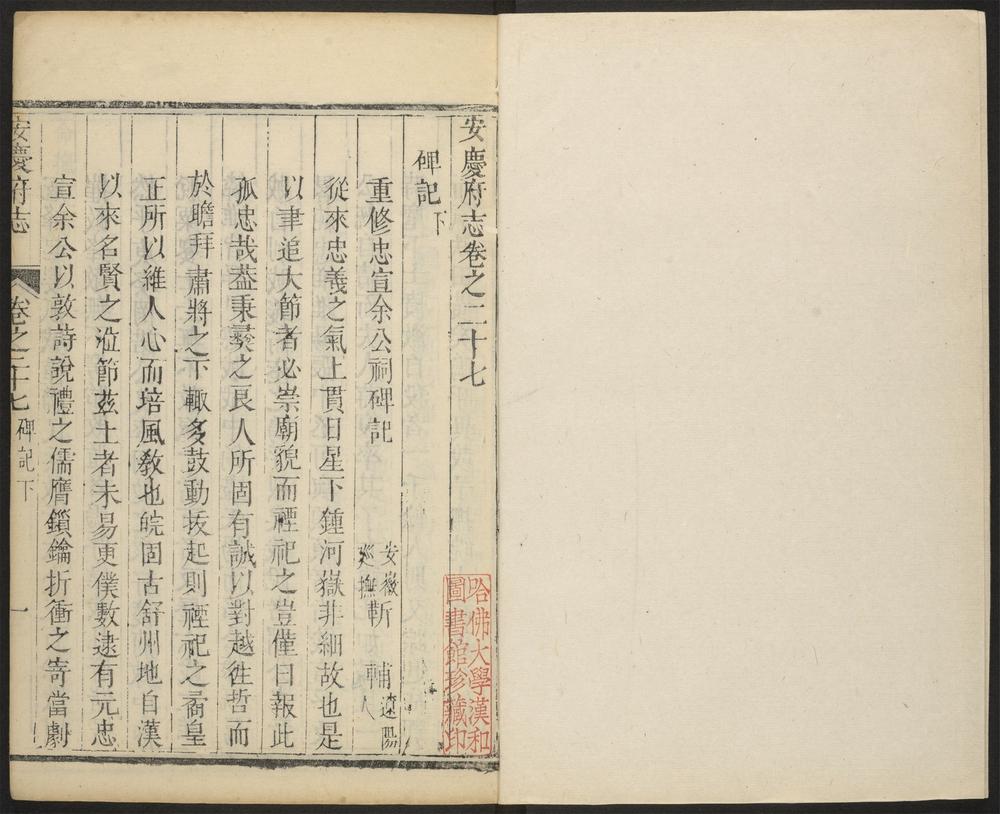 安慶府志卷之二十七
碑記下
重修忠宣余公祠碑記
安徽巡撫靳輔遼陽人
從來忠義之氣上貫日星下鍾河嶽非細故也是
以聿追大節者必崇廟貌而禋祀之豈僅曰報此
孤忠哉葢秉彛之良人所固有誠以對越徃哲而
於瞻拜肅將之下輙多鼓動抜起則禋祀之矞皇
正所以維人心而培風教也皖固古舒州地自漢
以來名賢之涖節兹土者未易更僕數逮有元忠
宣余公以敦詩說禮之儒膺鎻鑰折衝之寄當劇
安慶府志
卷之二十七
碑記下
一
哈佛大學漢和
圖書館珍藏印